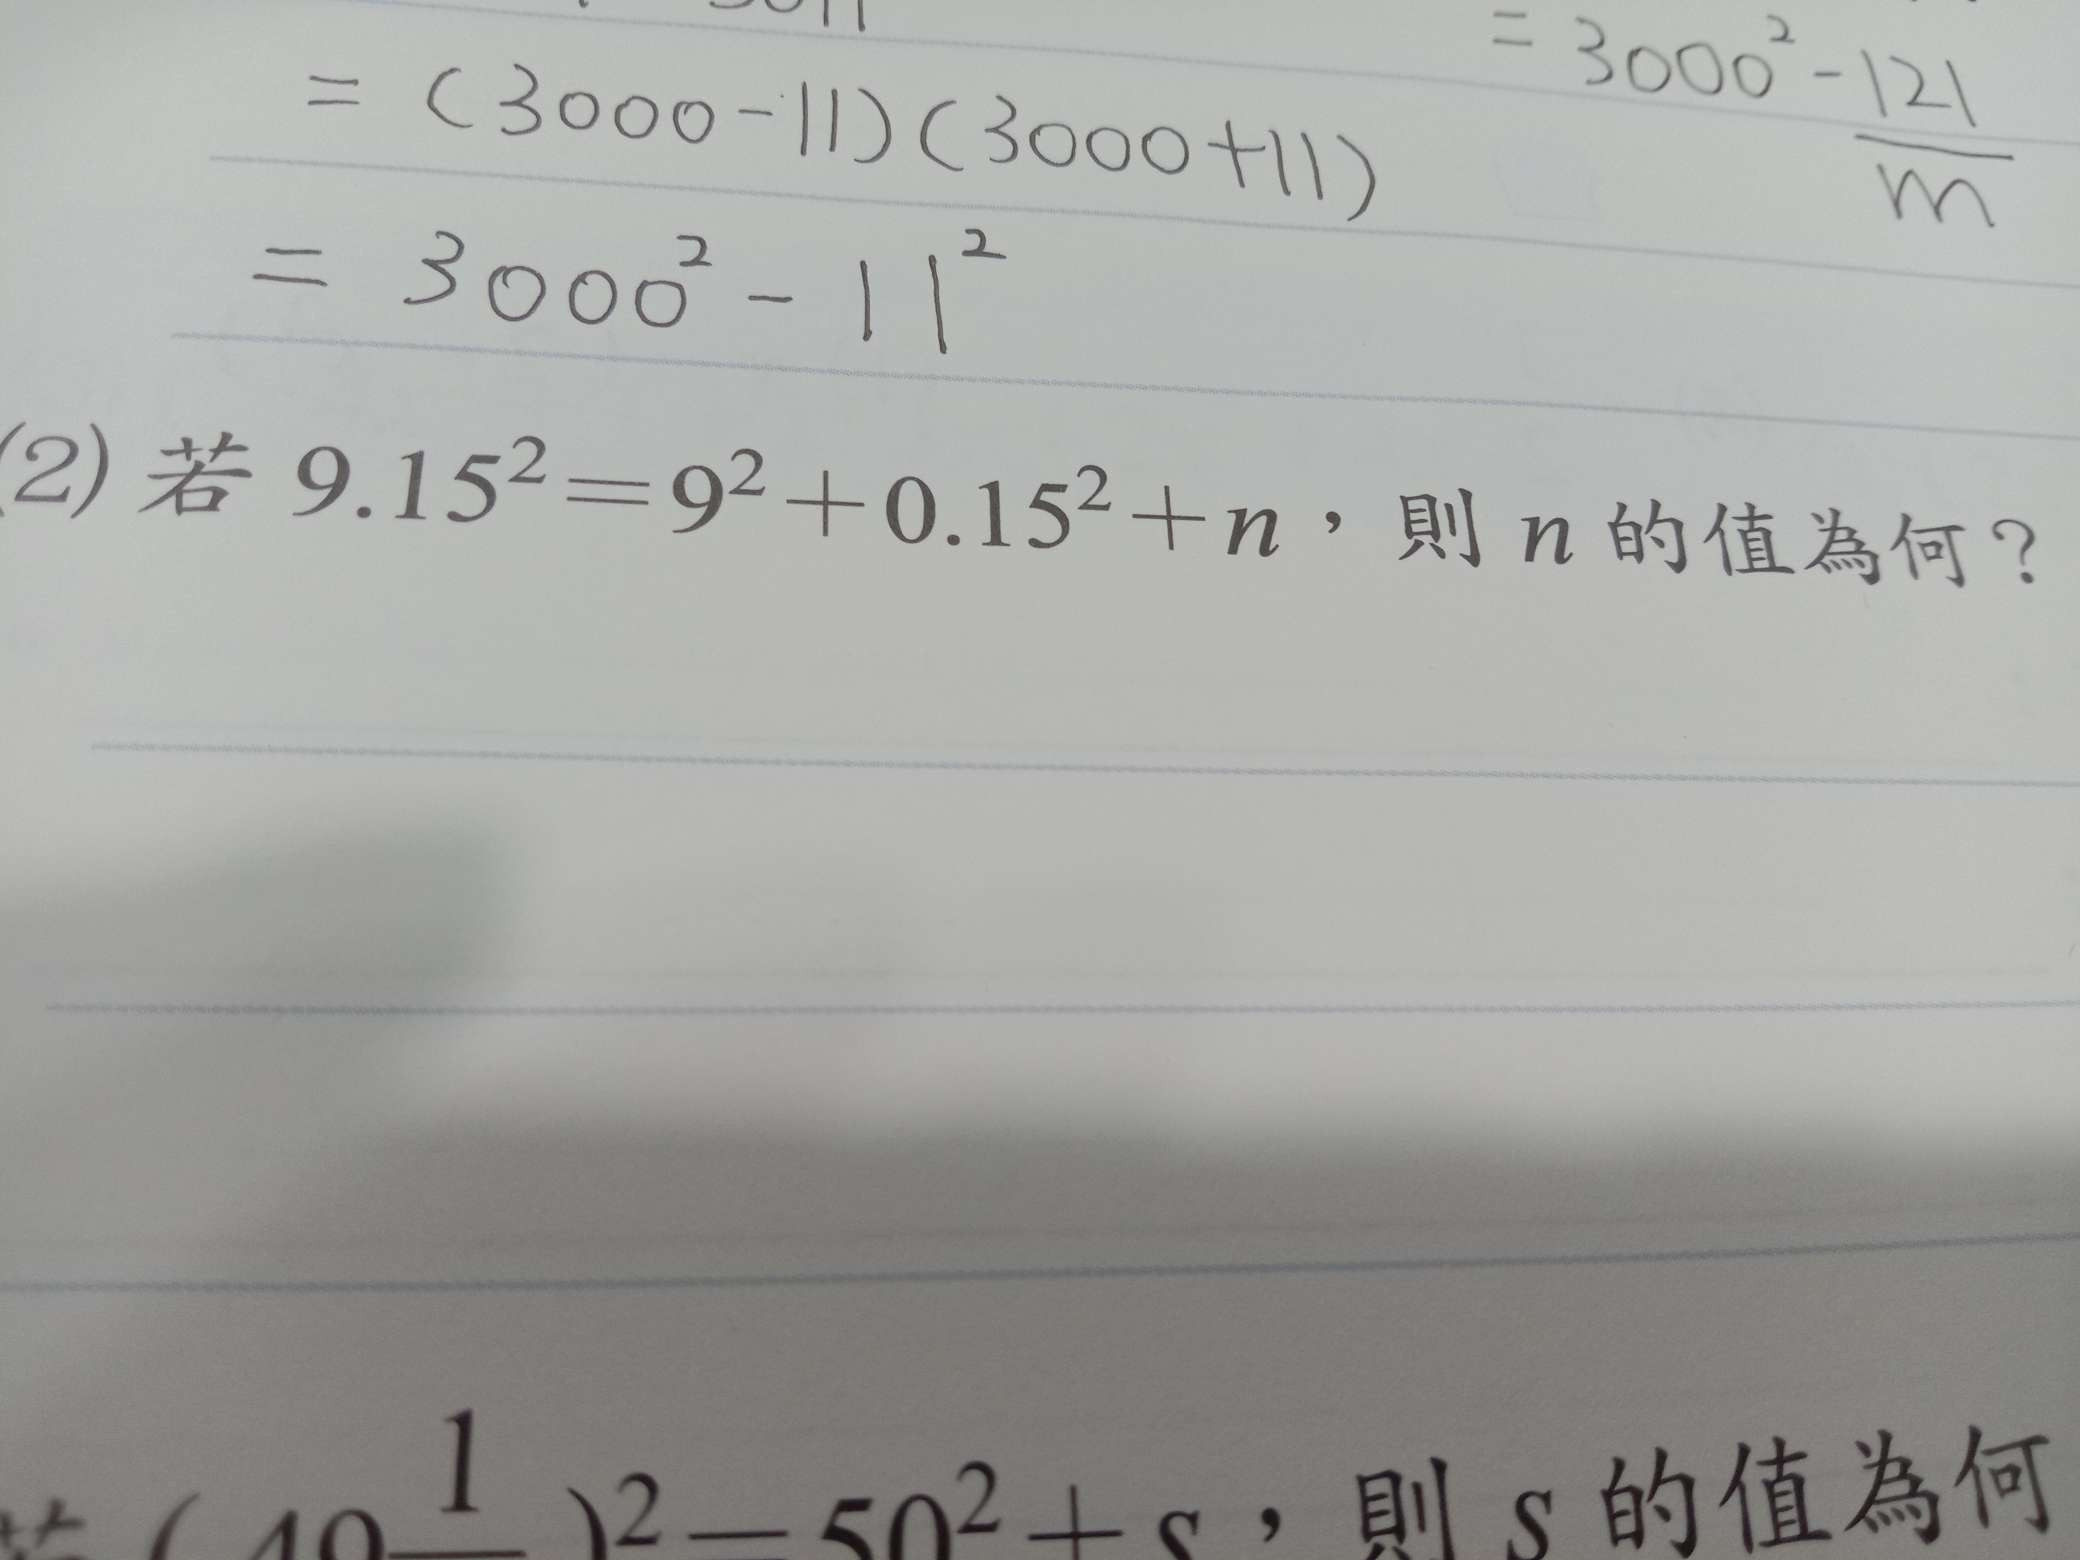 = 3000² - 121
m
= (3000 - 11)(3000 + 11)
= 3000² - 11²
(2) 若 9.15² = 9² + 0.15² + n，則 n 的值為何？
)² = 50² + s，則 s 的值為何